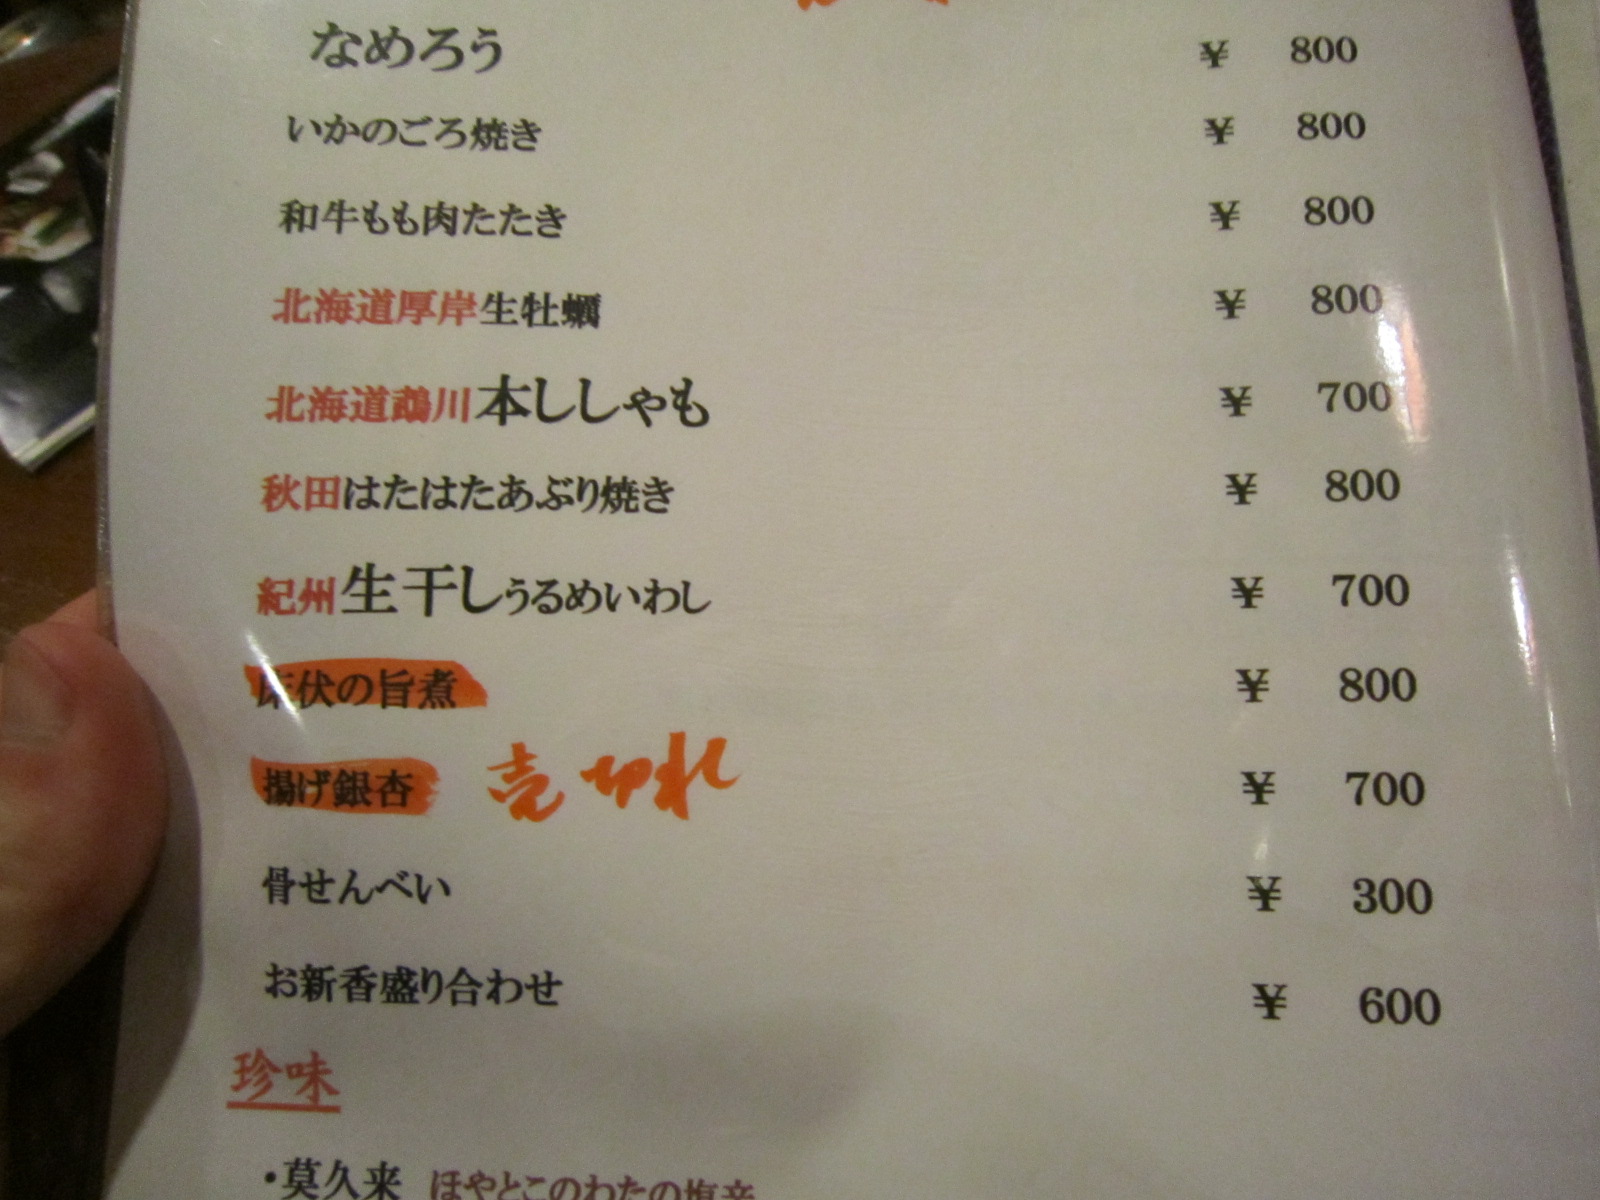 なめろう ¥ 800
いかのごろ焼き ¥ 800
和牛もも肉たたき ¥ 800
北海道厚岸生牡蠣 ¥ 800
北海道鵡川本ししゃも ¥ 700
秋田はたはたあぶり焼き ¥ 800
紀州生干しうるめいわし ¥ 700
床伏の旨煮 ¥ 800
揚げ銀杏 売切れ ¥ 700
骨せんべい ¥ 300
お新香盛り合わせ ¥ 600
珍味
・莫久来 ほやとこのわたの塩辛